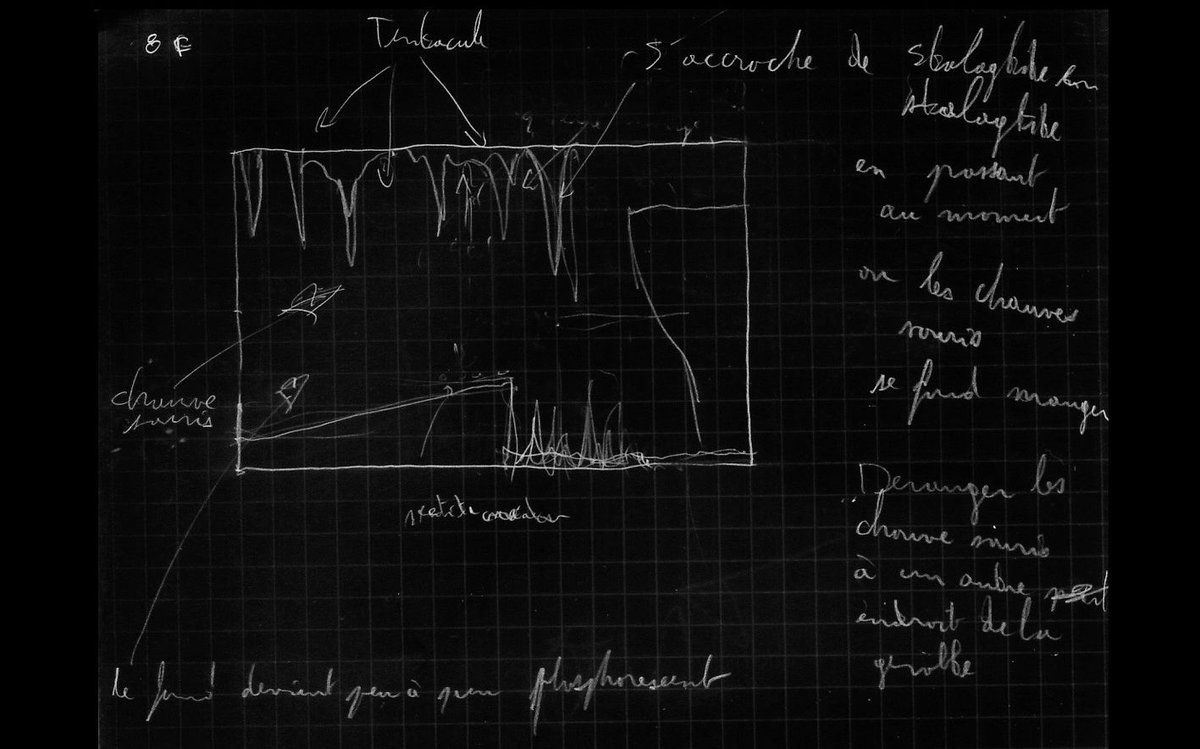 8 F
Tentacule
S'accroche de stalagtite en
stalagtite
en passant
au moment
ou les chauves
souris
se fond manger
chauve
souris
Deranger les
chauve souris
à un autre
endroit de la
grotte
le fond devient peu à peu phosphorescent